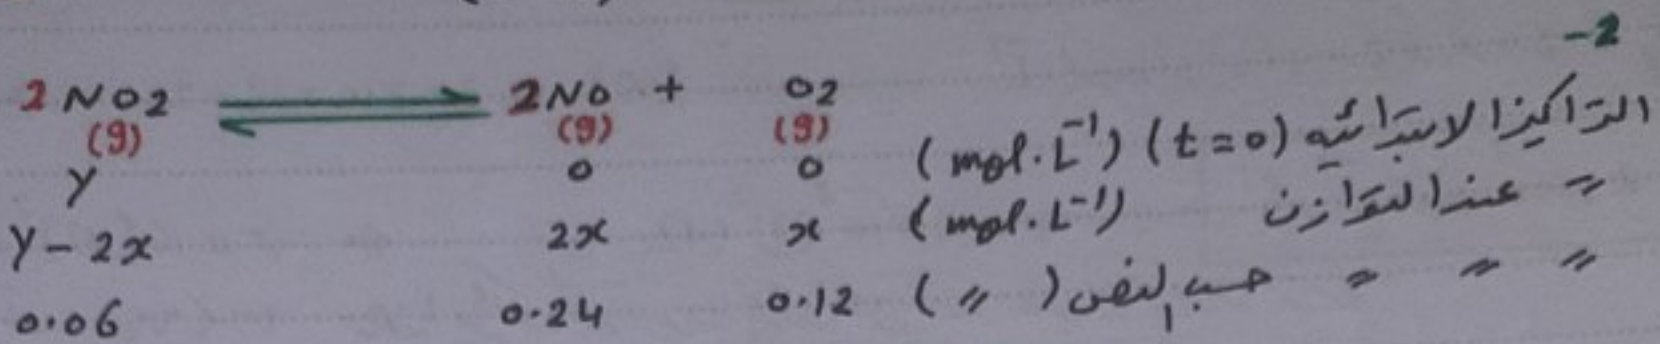 -2
2NO2 ⇌ 2NO + O2
(g) (g) (g)
y 0 0 (mol.L⁻¹) (t=0) التراكيز الابتدائيه
y-2x 2x x (mol.L⁻¹)〃 عند التوازن
0.06 0.24 0.12 (〃) 〃 〃 〃 حسب النص